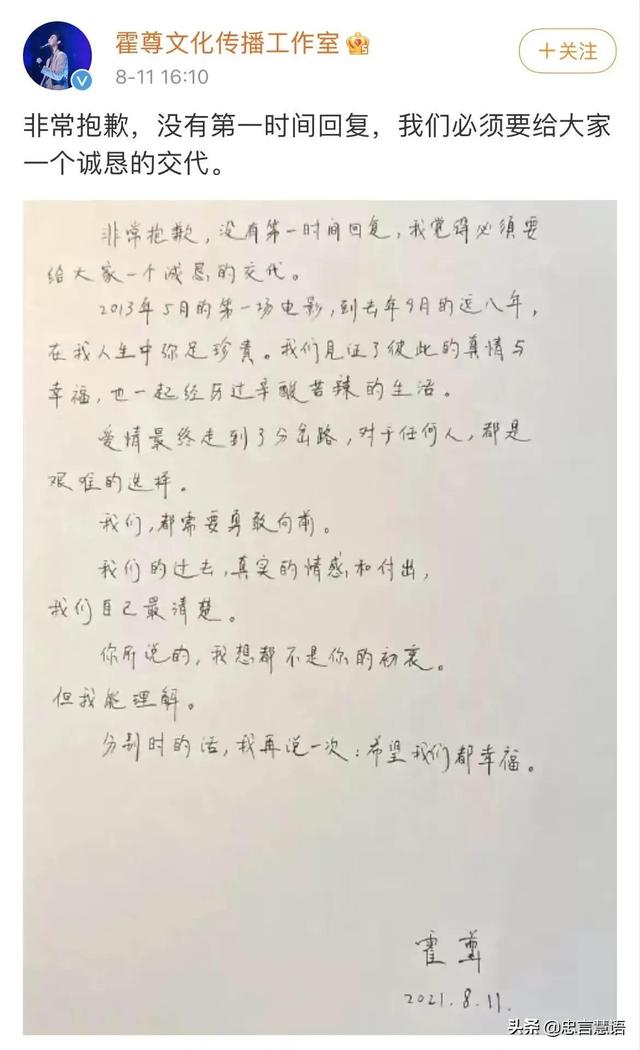 霍尊文化传播工作室
8-11 16:10
+关注
非常抱歉，没有第一时间回复，我们必须要给大家
一个诚恳的交代。
非常抱歉，没有第一时间回复，我觉得必须要
给大家一个诚恳的交代。
2013年5月的第一场电影，到去年9月的这八年，
在我人生中弥足珍贵。我们见证了彼此的真情与
幸福，也一起经历过辛酸苦辣的生活。
爱情最终走到了分岔路，对于任何人，都是
艰难的选择。
我们，都需要勇敢向前。
我们的过去，真实的情感和付出，
我们自己最清楚。
你所说的，我想都不是你的初衷。
但我能理解。
分别时的话，我再说一次：希望我们都幸福。
霍尊
2021.8.11.
头条 @忠言慧语